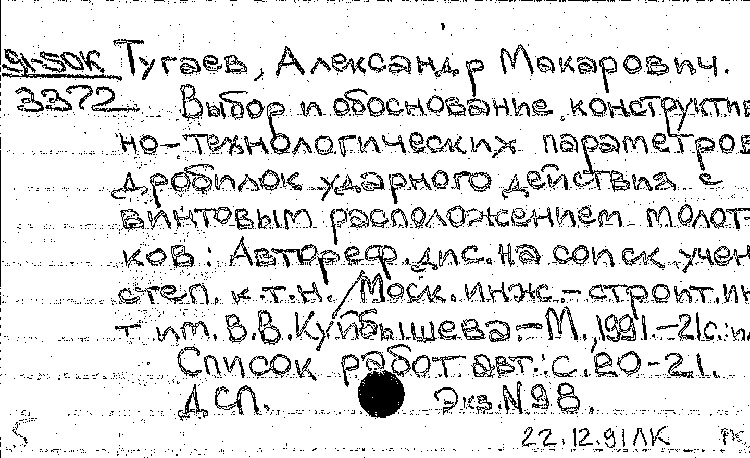 91-50К Тугаев, Александр Макарович.
3372 Выбор и обоснование конструктив
но-технологических параметров
дробилок ударного действия с
винтовым расположением молот
ков: Автореф. дис. на соиск учен
степ. к.т.н. / Моск. инж.-строит. ин
т им. В.В. Куйбышева.-М., 1991.-21с.: ил
Список работ авт.: с. 20-21.
ДСП. Экз. N98.
5 22.12.91 ЛК